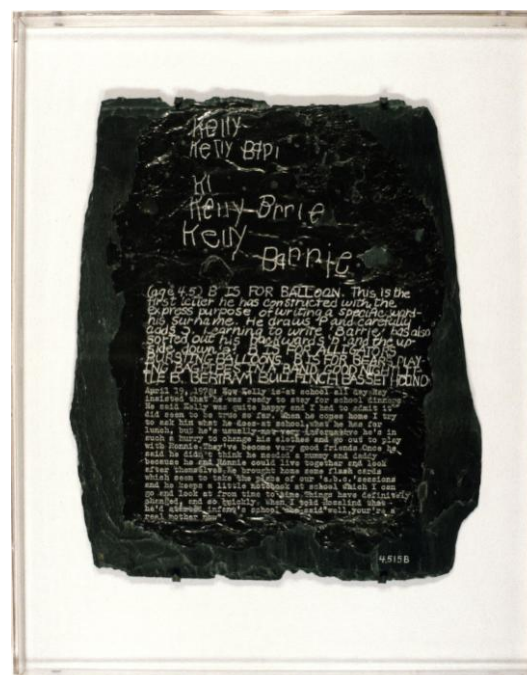 Kelly
Kelly BAPI
Kl
Kelly Brrle
Kelly
Barrie
(age 4.5) B IS FOR BALLOON. This is the
first letter he has constructed with the
express purpose of writing a specific word-
his surname. He draws P and carefully
adds ɔ. Learning to write 'Barrie' has also
sorted out his backwards and the up-
side down
BURSTING BALLOONS. B IS FOR BEARS PLAY-
ING IN A BAND. GOOD NIGHT LIT-
TLE B. BERTRAM BULLFINCH BASSET HOUND
April 19, 1978 Now Kelly is at school all day. Ray
insisted that he was ready to stay for school dinner.
He said Kelly was quite happy and I had to admit it
did seem to be true so far. When he comes home I try
to ask him what he does at school, what he has for
lunch, but he's because he's in
such a hurry to change his clothes and go out to play
with Mannie. They've become very good friends. Once he
said he didn't think he needed a mummy and daddy
because he and Mannie could live together and look
after themselves. He brings home some flash cards
which seem to take the place of our 'a.b.c.' sessions
and he has his own at school which I can
go and look at from time to time. Things have definitely
changed,
he'd infant's school he said well, your're a
real mother now.
4.515B